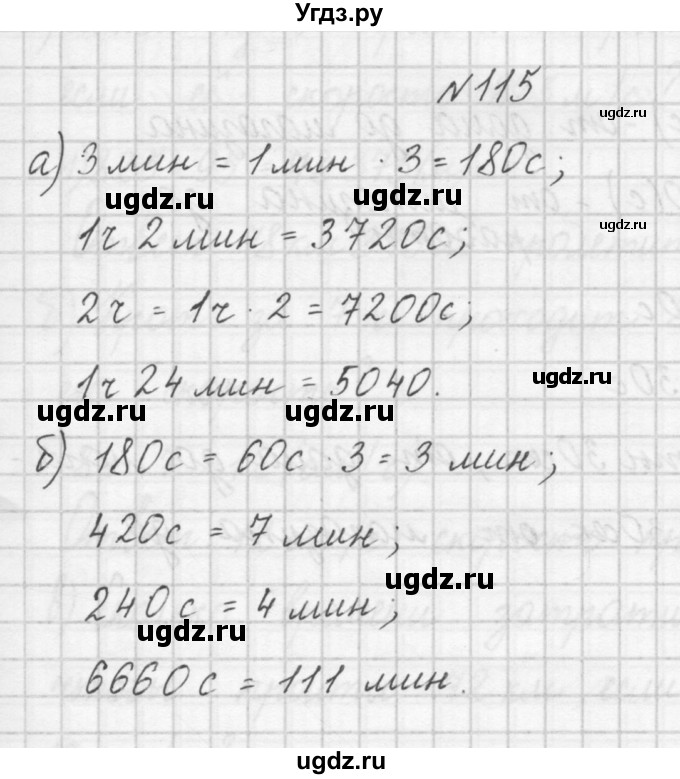 Угдз.ру
N115
ugdz.ru
а) 3 мин = 1 мин · 3 = 180с;
ugdz.ru ugdz.ru
1ч 2 мин = 3720с;
ugdz.ru
2ч = 1ч · 2 = 7200с;
1ч 24 мин = 5040.
ugdz.ru
ugdz.ru ugdz.ru
б) 180с = 60с · 3 = 3 мин;
420с = 7 мин;
ugdz.ru
240с = 4 мин;
ugdz.ru
6660с = 111 мин.
ugdz.ru